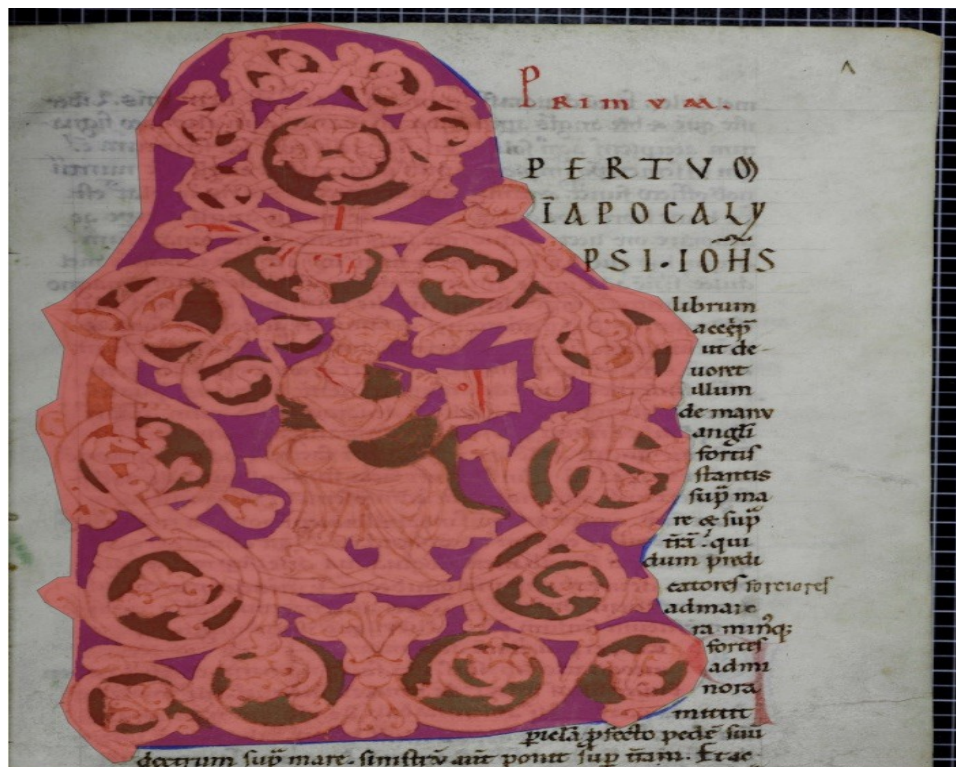 PRIMVM.
PERTVM
ĪAPOCALY
PSI·IOH̄S
librum
accep̄
ut de-
uoret
illum
de manv
angli
fortis
stantis
sup̄ ma
re & sup̄
t̄rā. qui
dum predi
catores fortiores
admare
fortes
admi
nora
mittit
pielā pfecto pedē suū
dextrum sup̄ mare. sinistrv̄ aūt ponit sup t̄ram. Et ac